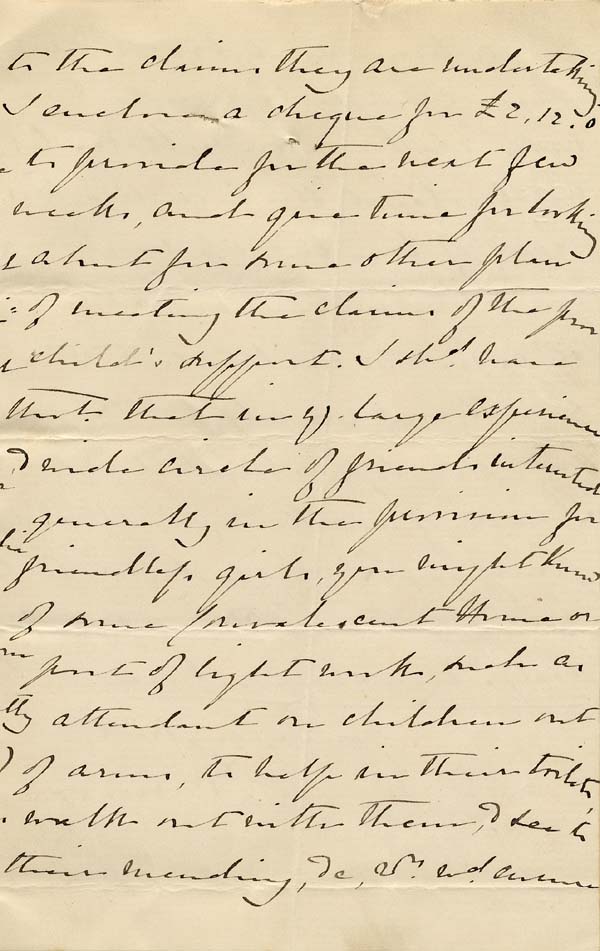 to the claims they are undertaking
I enclose a cheque for £2.12.0
to provide for the next few
weeks, and give time for looking
about for some other plan
of meeting the claims of the poor
child's support. I shd. have
thot. that in yr. large experience
& wide circle of friends interested
generally in the provision for
friendless girls, you might know
of some Convalescent Home or
post of light work, such as
attendant on children out
of arms, to help in their toilets,
walk out with them, & see to
their mending, &c,